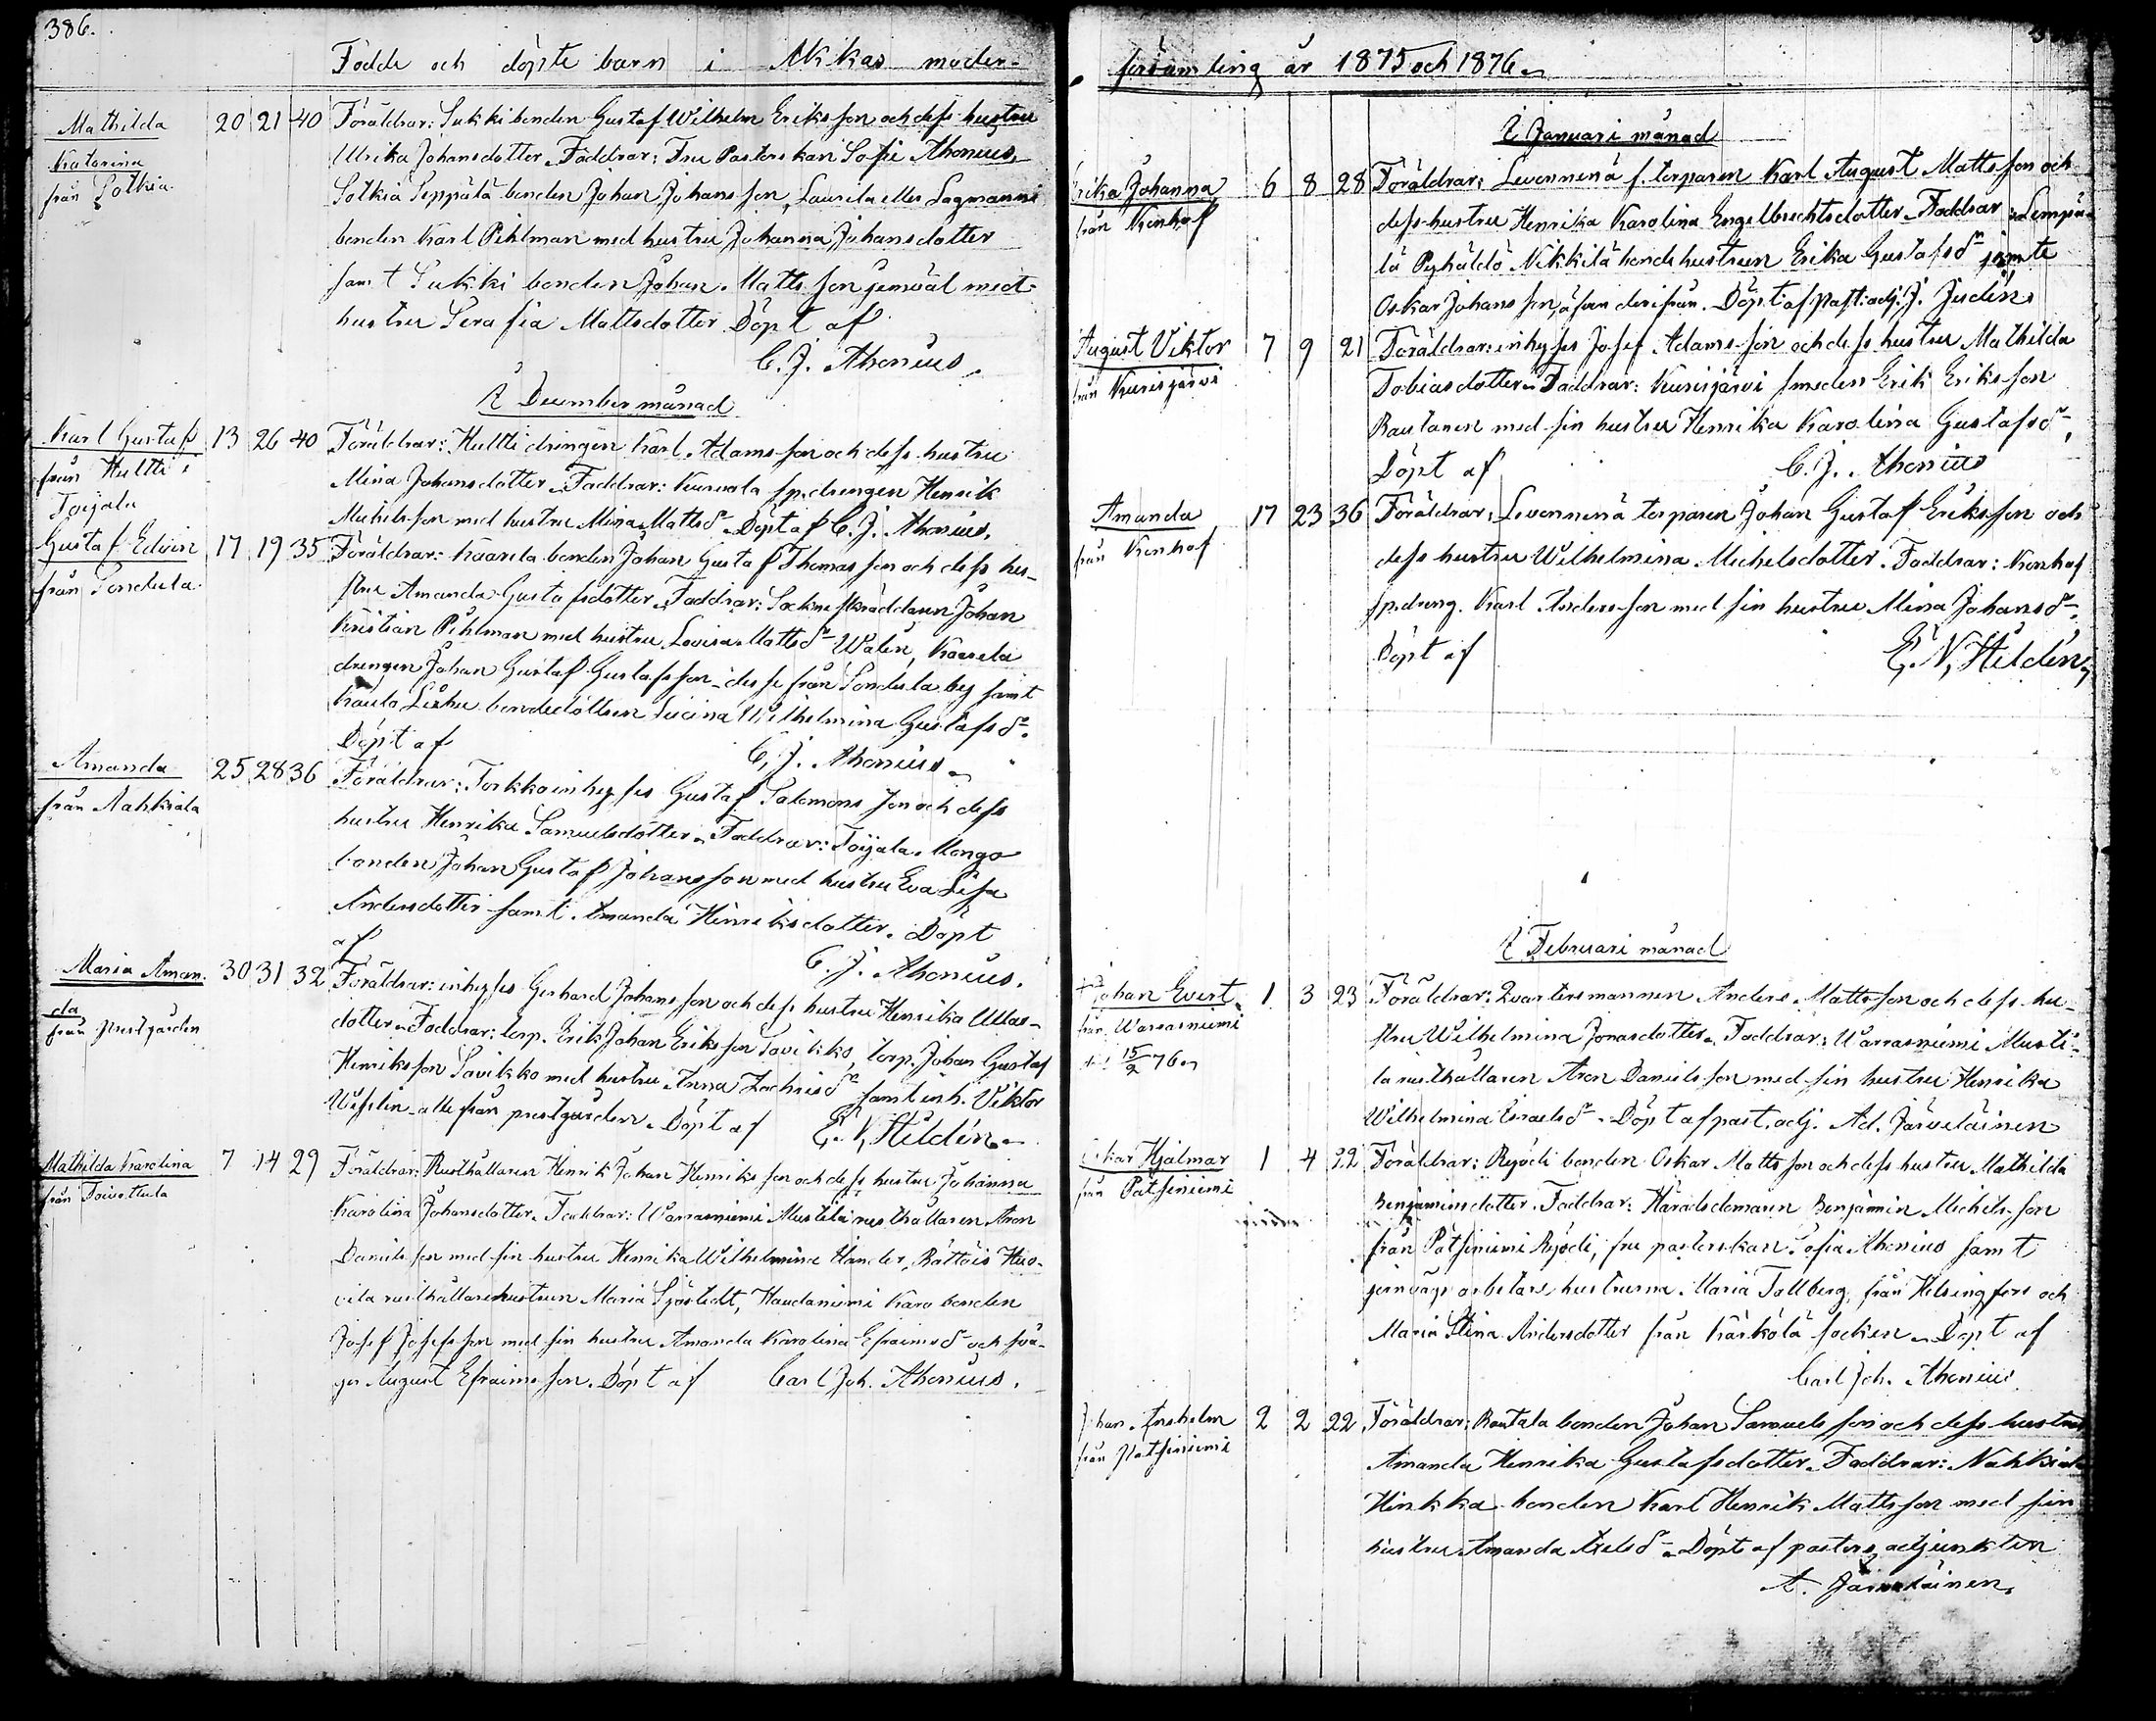 386.
Födde och döpte barn i Akkas moder-
Mathilda 20 21 40 Föräldrar: Sukki bonden Gustaf Wilhelm Eriksson och dess hustru
Katarina Ulrika Johansdotter. Faddrar: Fru Pastorskan Sofie Ahonius,
från Sotkia. Sotkia Seppälä bonden Johan Johansson, Laurila eller Lagmanni
bonden Karl Pihlman med hustru Johanna Johansdotter
samt Sukki bonden Johan Mattsson jemväl med
hustru Serafia Mattsdotter. Döpt af
C. J. Ahonius.
I December månad
Karl Gustaf 13 26 40 Föräldrar: Hultti drängen Karl Adamsson och dess hustru
från Hultti, Mina Johansdotter. Faddrar: Kurvola sp.drengen Henrik
Toijala Michelsson med hustru Mina Mattsdr. Döpt af C. J. Ahonius.
Gustaf Edvin 17 19 35 Föräldrar: Kaarela bonden Johan Gustaf Thomasson och dess hu-
från Sondula. stru Amanda Gustafsdotter. Faddrar: Sockne skräddaren Johan
Kristian Pihlman med hustru Lovisa Mattsdr Walén, Kaarela
drengen Johan Gustaf Gustafsson - desse från Sondula by samt
bondedottren Wilhelmina Gustafsdr.
Döpt af C. J. Ahonius.
Amanda 25 28 36 Föräldrar: Torkko inhyses Gustaf Salomonsson och dess
från Nahkiala hustru Henrika Samuelsdotter. Faddrar: Toijala Mongo
bonden Johan Gustaf Johansson med hustru Eva Lisa
Andersdotter samt Amanda Henriksdotter. Döpt
af C. J. Ahonius.
Maria Aman- 30 31 32 Föräldrar: inhyses Gerhard Johansson och dess hustru Henrika
da dotter. Faddrar: torp. Erik Johan Eriksson Savikko, torp. Johan Gustaf
från prestgården Henriksson Savikko med hustru Anna Zachrisdr samt inh. Viktor
alle från prestgården. Döpt af E. V. Hildén.
Mathilda Karolina 7 14 29 Föräldrar: Rusthållaren Henrik Johan Henriksson och dess hustru Johanna
från Toivottula Karolina Johansdotter. Faddrar: Warrasniemi Mustila rusthållaren Aron
Danielsson med sin hustru Henrika Wilhelmina Hander, Rättäis Huo-
vila rusthållarehustrun Maria Sjöstedt, Haudaniemi Karo bonden
Josef Josefsson med sin hustru Amanda Karolina Efraimsdr och svå-
ger August Efraimsson. Döpt af Carl Joh. Ahonius.
församling år 1875 och 1876.
I Januari månad
Erika Johanna 6 8 28 Föräldrar: Levonnenä f. torparen Karl August Mattsson och
från Konhof dess hustru Henrika Karolina Engelbrechtsdotter. Faddrar: Lempää-
lä Pyhäldö Nikkilä bondehustrun Erika Gustafsdr jemte
Oskar Johansson, äfven derifrån. Döpt af past. adj. J. Judén.
August Viktor 7 9 21 Föräldrar: inhyses Josef Adamsson och dess hustru Mathilda
från Kurisjärvi Tobiasdotter. Faddrar: Kurisjärvi smeden Erik Eriksson
Rautanen med sin hustru Henrika Karolina Gustafsdr.
Döpt af C. J. Ahonius
Amanda 17 23 36 Föräldrar: Levonnenä torparen Johan Gustaf Eriksson och
från Konhof dess hustru Wilhelmina Michelsdotter. Faddrar: Konhof
sp.dreng. Karl Andersson med sin hustru Mina Johansdr.
Döpt af E. V. Hildén.
I Februari månad
+ Johan Evert 1 3 23 Föräldrar: Qvartersmannen Anders Mattsson och dess hu-
från Warrasniemi stru Wilhelmina Jonasdotter. Faddrar: Warrasniemi Musti-
+ 15/2 76. la rusthållaren Aron Danielsson med sin hustru Henrika
Wilhelmina Israelsdr. Döpt af past. adj. Ad. Järveläinen
Oskar Hjalmar 1 4 22 Föräldrar: Ryödi bonden Oskar Mattsson och dess hustru Mathilda
från Patsiniemi Benjaminsdotter. Faddrar: Häradsdomaren Benjamin Michelsson
från Patsiniemi Ryödi, fru pastorskan Sofia Ahonius samt
jernvägs arbetare hustrurna Maria Tallberg från Helsingfors och
Maria Stina Andersdotter från Kärkölä socken. Döpt af
Carl Joh. Ahonius
Johan Anshelm 2 2 22 Föräldrar: Rautala bonden Johan Samuelsson och dess hustru
från Patsiniemi Amanda Henrika Gustafsdotter. Faddrar: Nahkiala
Hinkka bonden Karl Henrik Mattsson med sin
hustru Amanda Axelsdr. Döpt af pastors adjunkten
A. Järveläinen.